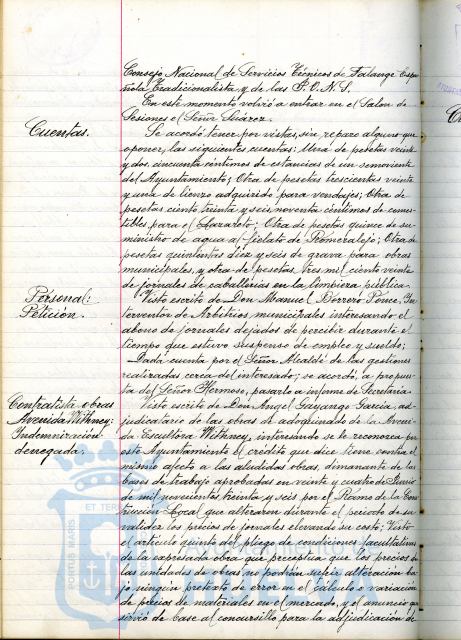 Consejo Nacional de Servicios Técnicos de Falange Espa-
ñola Tradicionalista y de las J.O.N.S.
En este momento volvió a entrar en el Salon de
Sesiones el Señor Suárez.
Cuentas.
Se acordó tener por vistas, sin reparo alguno que
oponer, las siguientes cuentas: Una de pesetas veinte
y dos, cincuenta céntimos de estancias de un semoviente
del Ayuntamiento; Otra de pesetas trescientas veinte
y una de lienzo adquirido para vendajes; Otra de
pesetas ciento treinta y seis noventa céntimos de comes-
tibles para el Lazareto; Otra de pesetas quince de su-
ministro de agua al fielato de Romeralejo; Otra de
pesetas quinientas diez y seis de grava para obras
municipales, y otra de pesetas tres mil ciento veinte
de jornales de caballerias en la limpieza pública.
Personal:
Petición.
Visto escrito de Don Manuel Borrero Ponce, In-
terventor de Arbitrios municipales interesando el
abono de jornales dejados de percibir durante el
tiempo que estuvo suspenso de empleo y sueldo;
Dada cuenta por el Señor Alcalde de las gestiones
realizadas cerca del interesado; se acordó, a propues-
ta del Señor Hermoso, pasarlo a informe de Secretaria
Contratista obras
Avenida Withney:
Indemnización
denegada.
Visto escrito de Don Angel Gayango Garcia, ad-
judicatario de las obras de adoquinado de la Aveni-
da Escultora Withney, interesando se le reconozca por
este Ayuntamiento el crédito que dice tiene contra el
mismo afecto a las aludidas obras, dimanante de las
bases de trabajo aprobadas en veinte y cuatro de Junio
de mil novecientos treinta y seis por el Ramo de la Cons-
trucion Local que alteraron durante el periodo de su
validez los precios de jornales elevando su costo; Visto
el articulo quinto del pliego de condiciones facultativas
de la expresada obra que preceptua que los precios de
las unidades de obras no podrán sufrir alteración ba-
jo ningún pretexto de error en el cálculo o variacion
de precios de materiales en el mercado, y el anuncio que
sirvió de base al concursillo para la adjudicación de
PORTUS MARIS ET TER